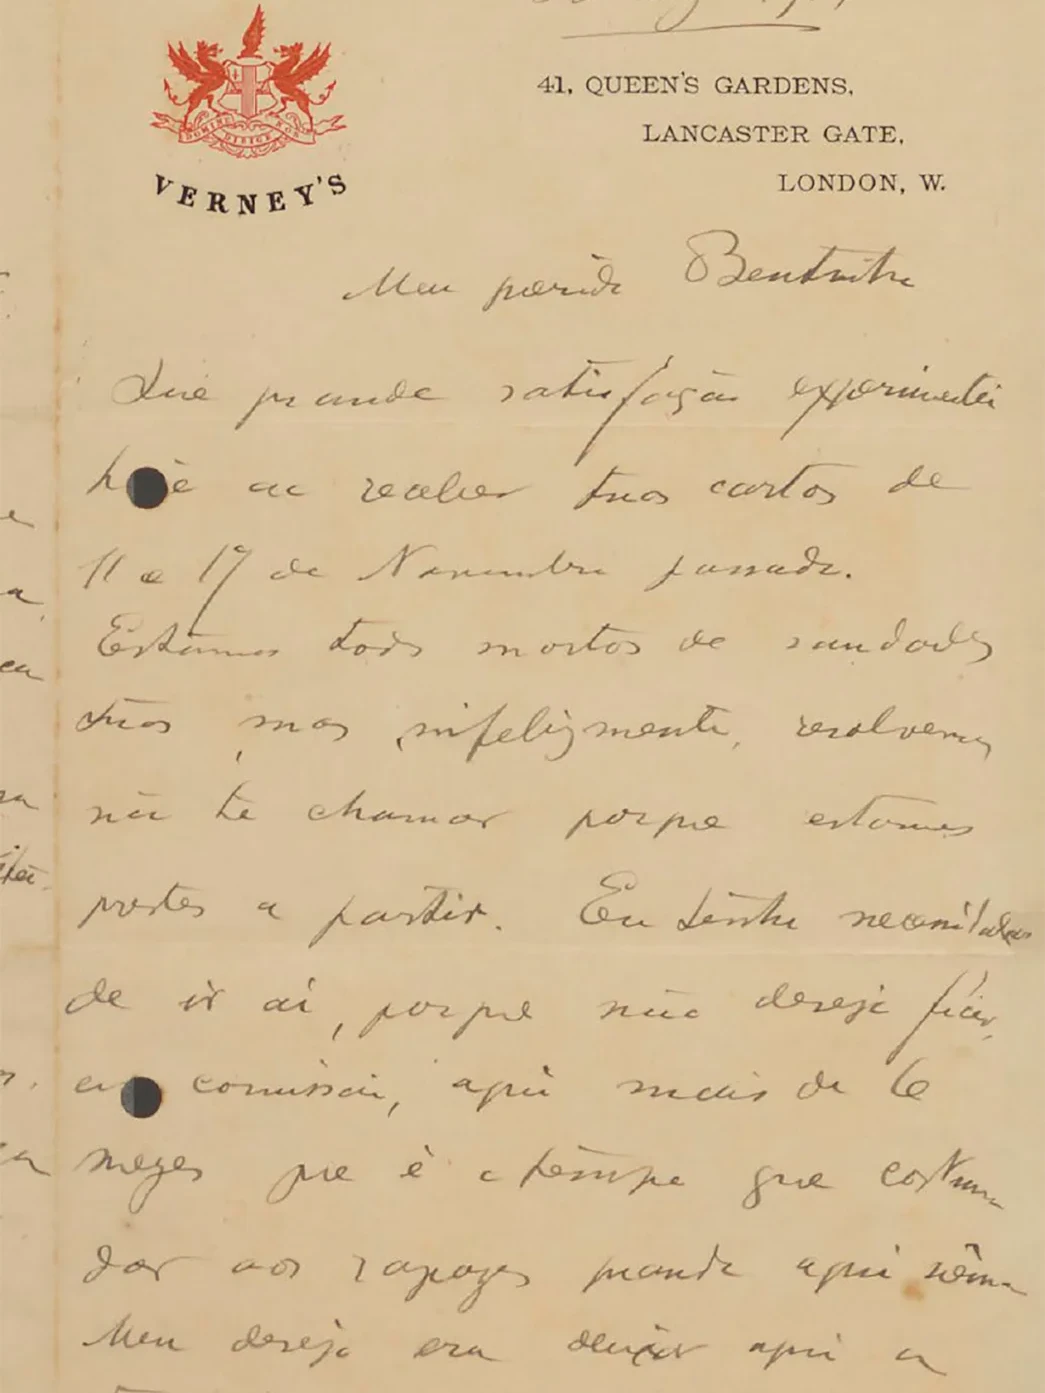 DOMINE DIRIGE NOS
VERNEY'S
41, QUEEN'S GARDENS,
LANCASTER GATE,
LONDON, W.
Meu querido Bentinho
Que grande satisfação experimentei
hoje ao receber tuas cartas de
11 e 17 de Novembro passado.
Estamos todos mortos de saudades
tuas, mas, infelizmente, resolvemos
não te chamar porque estamos
prestes a partir. Eu tenho necessidade
de ir aí, porque não desejo ficar,
em comissão, aqui mais de 6
mezes que é o tempo que costumam
dar aos rapazes quando aqui vêm.
Meu desejo era deixar aqui a